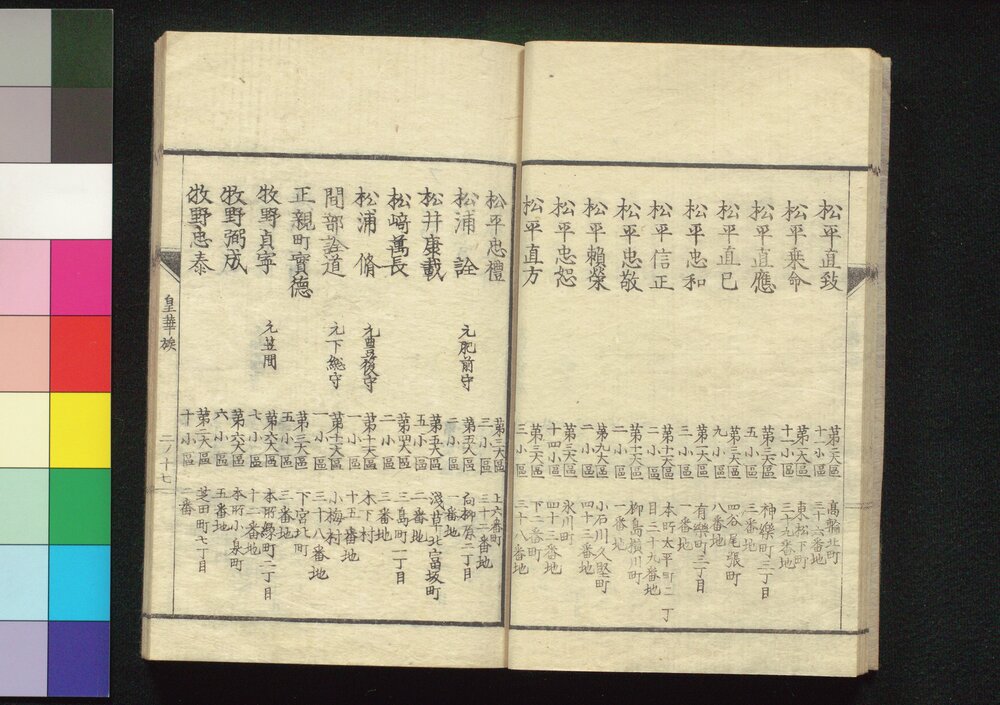 松平直致
第二大區
十一小區
高輪北町
三十六番地
松平乗命
第一大區
十一小區
東松下町
三十九番地
松平直應
第三大區
五小區
神樂町三丁目
三番地
松平直巳
第三大區
九小區
四谷尾張町
八番地
松平忠和
第一大區
三小區
有樂町三丁目
一番地
松平信正
第十一大區
二小區
本所太平町二丁
目三十九番地
松平忠敬
第十一大區
二小區
柳島横川町
一番地
松平頼榮
第九大區
二小區
小石川久堅町
四十三番地
松平忠恕
第二大區
十四小區
氷川町
四十三番地
松平直方
第三大區
三小區
下二番町
三十八番地
松平忠禮
第三大區
三小區
上六番町
三十二番地
松浦詮
元肥前守
第五大區
二小區
向柳原二丁目
一番地
松井康載
第五大區
五小區
淺草北富坂町
二番地
松﨑萬長
第四大區
二小區
三島町一丁目
三番地
松浦脩
元豊後守
第十一大區
一小區
木下村
十五番地
間部詮道
元下総守
第十一大區
一小區
小梅村
三十八番地
正親町實德
第三大區
五小區
下宮比町
三番地
牧野貞寧
元笠間
第六大區
七小區
本所緑町二丁目
十二番地
牧野弼成
第六大區
六小區
本所小泉町
五番地
牧野忠泰
第二大區
十小區
芝田町七丁目
二番
皇華族
二ノ十七